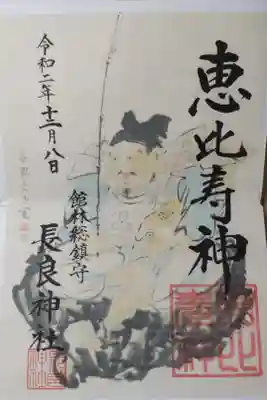 恵比寿神
館林総鎮守
長良神社
令和二年十二月八日